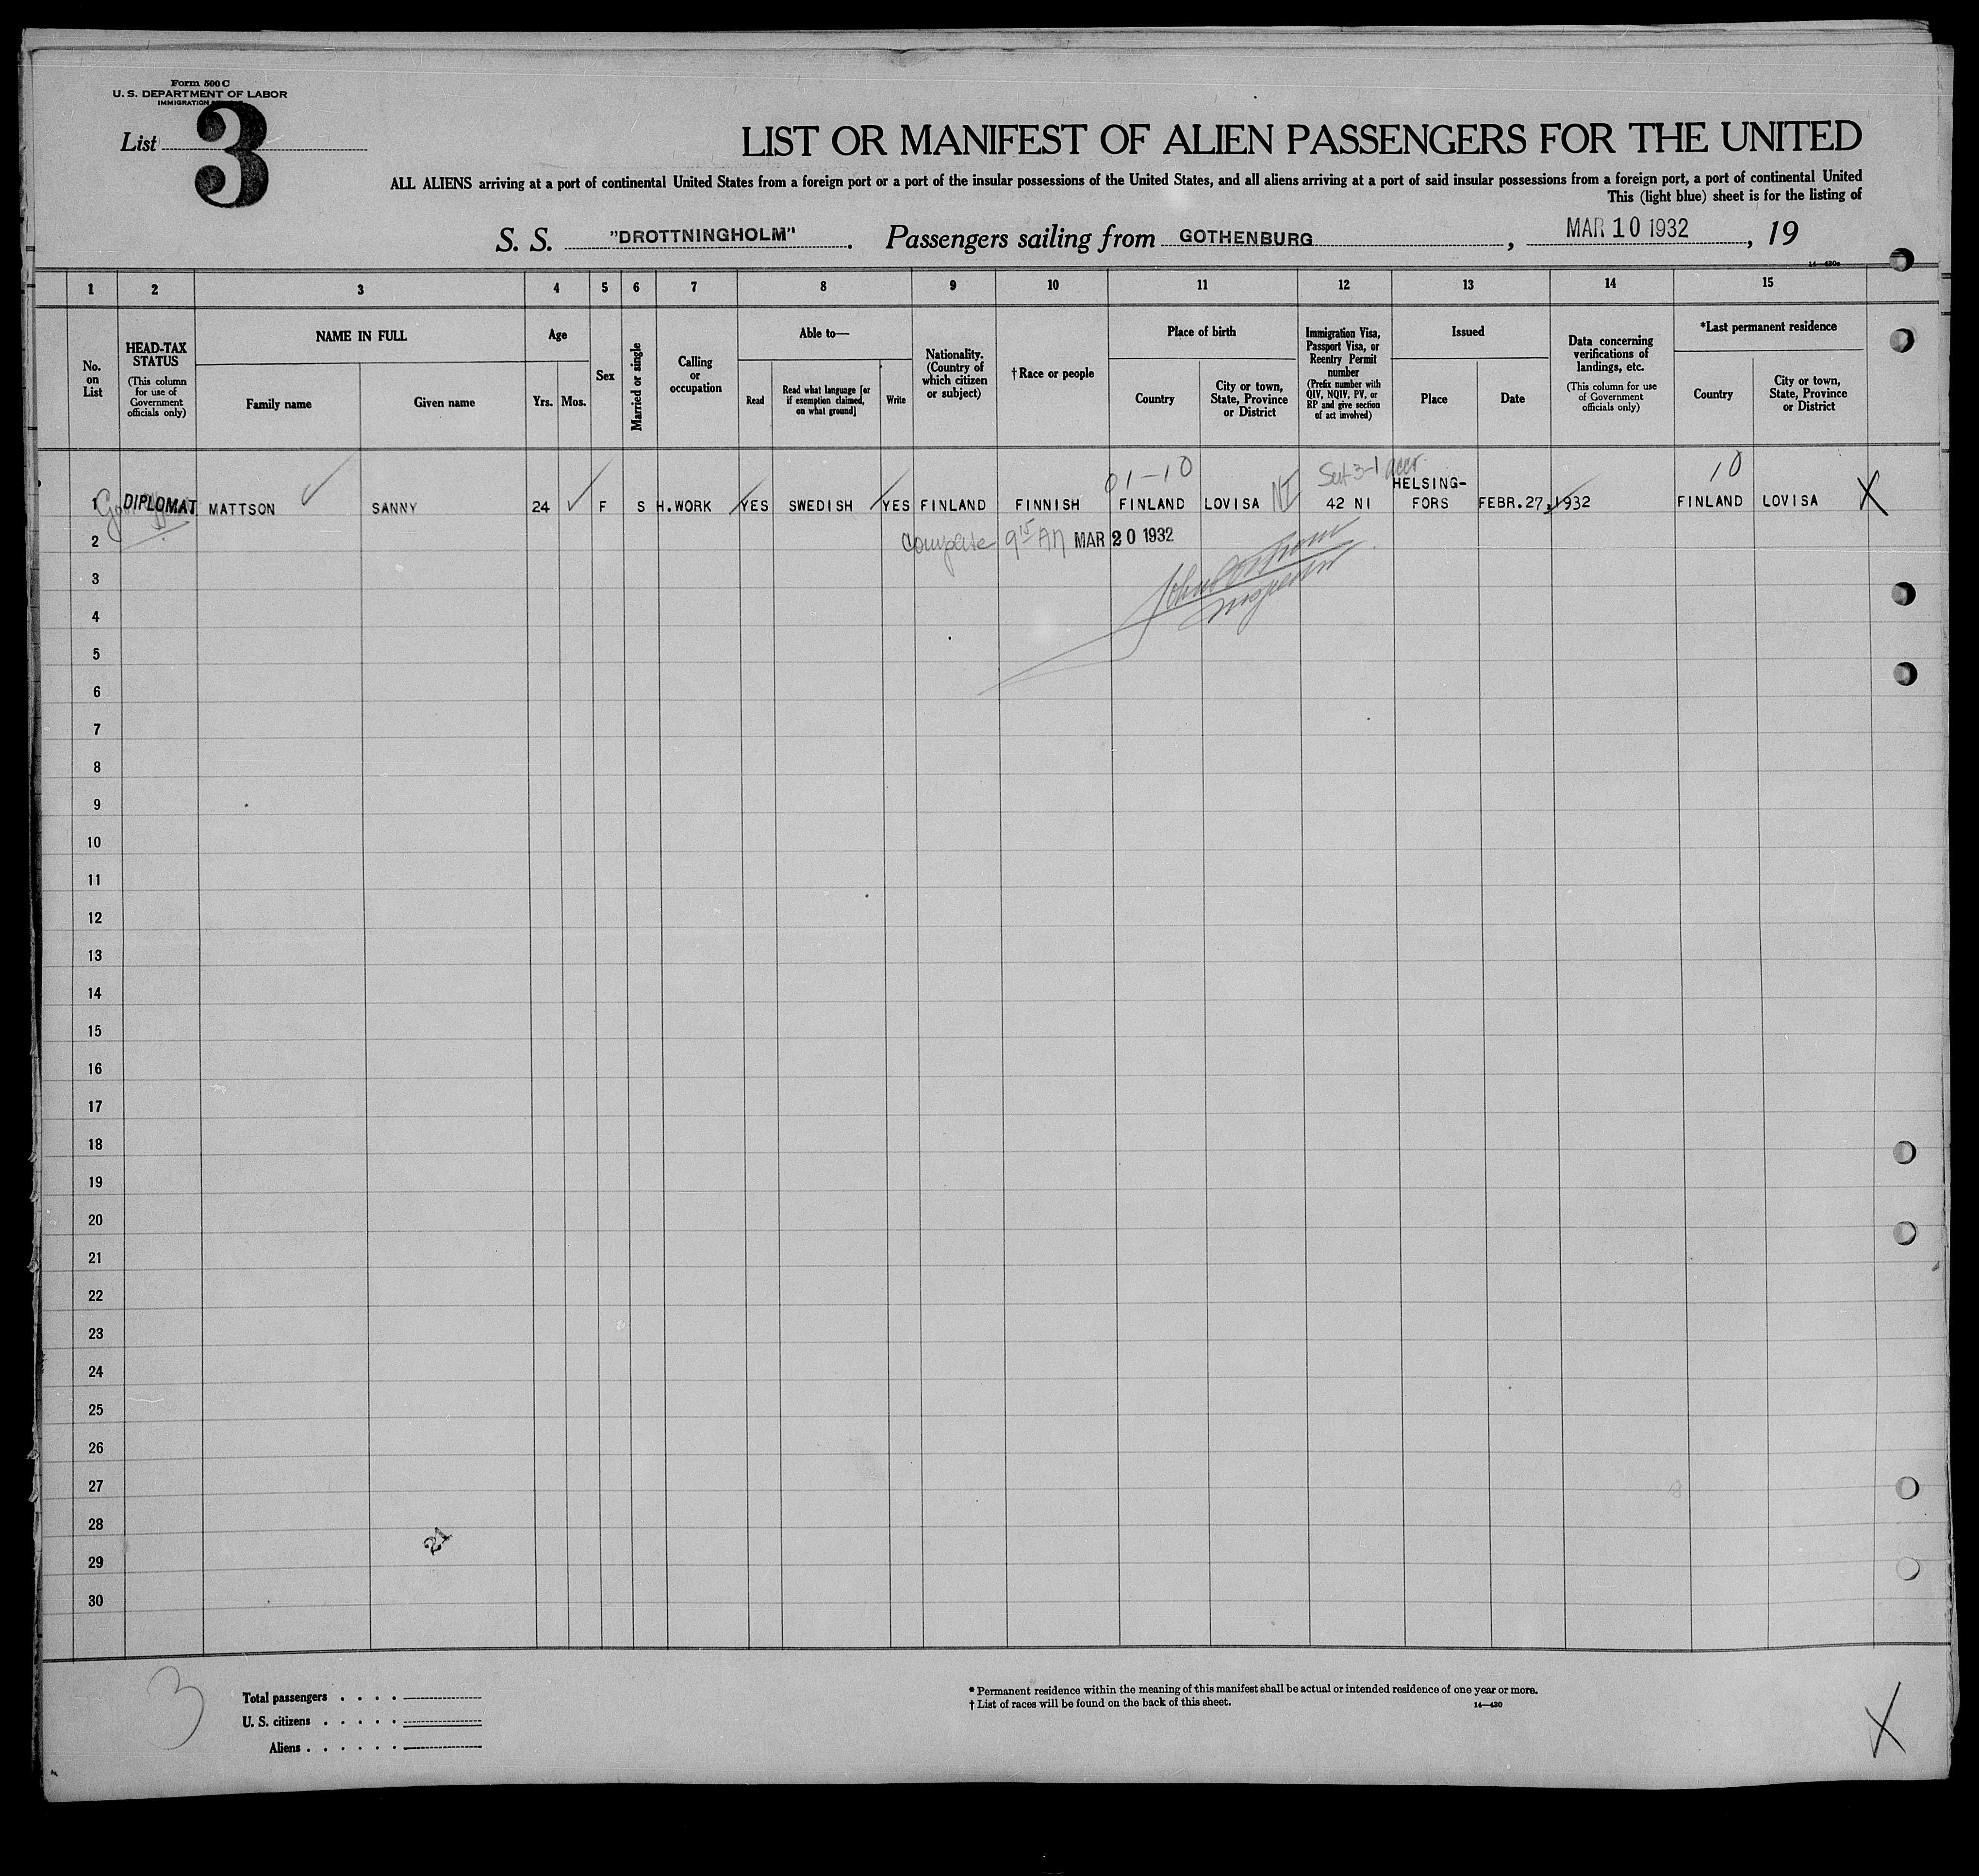 Form 500 C
U. S. DEPARTMENT OF LABOR
IMMIGRATION
List 3
LIST OR MANIFEST OF ALIEN PASSENGERS FOR THE UNITED
ALL ALIENS arriving at a port of continental United States from a foreign port or a port of the insular possessions of the United States, and all aliens arriving at a port of said insular possessions from a foreign port, a port of continental United
This (light blue) sheet is for the listing of
S. S. "DROTTNINGHOLM". Passengers sailing from GOTHENBURG, MAR 10 1932, 19
14—430a
1 2 3 4 5 6 7 8 9 10 11 12 13 14 15
No. on List
HEAD-TAX STATUS
(This column for use of Government officials only)
NAME IN FULL
Family name
Given name
Age
Yrs.
Mos.
Sex
Married or single
Calling or occupation
Able to—
Read
Read what language [or if exemption claimed, on what ground]
Write
Nationality. (Country of which citizen or subject)
† Race or people
Place of birth
Country
City or town, State, Province or District
Immigration Visa, Passport Visa, or Reentry Permit number
(Prefix number with QIV, NQIV, PV, or RP and give section of act involved)
Issued
Place
Date
Data concerning verifications of landings, etc.
(This column for use of Government officials only)
*Last permanent residence
Country
City or town, State, Province or District
01-10
10
1 DIPLOMAT MATTSON SANNY 24 F S H.WORK YES SWEDISH YES FINLAND FINNISH FINLAND LOVISA NI 42 NI HELSING-FORS FEBR.27,1932 FINLAND LOVISA X
2 Complete 9 15 AM MAR 20 1932
3
Inspector
4
5
6
7
8
9
10
11
12
13
14
15
16
17
18
19
20
21
22
23
24
25
26
27
28
21
29
30
3
Total passengers . . . .
U. S. citizens . . . . .
Aliens . . . . . .
* Permanent residence within the meaning of this manifest shall be actual or intended residence of one year or more.
† List of races will be found on the back of this sheet.
14—430
X